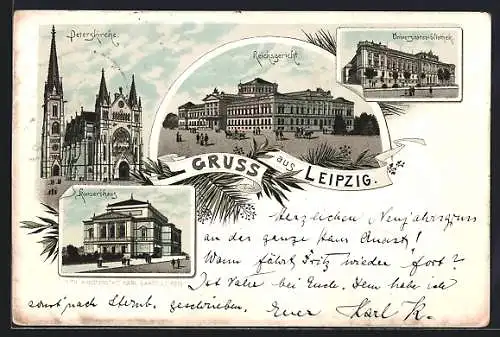 Peterskirche
Reichsgericht
Universitätsbibliothek
GRUSS aus LEIPZIG.
Konzerthaus
herzlichen Neujahrsgruss
an das ganze Haus
Wann fährt Fritz wieder fort?
Ist Vater bei Euch. Dem habe ich
sonst nach Sternb. geschrieben. Euer Karl K.